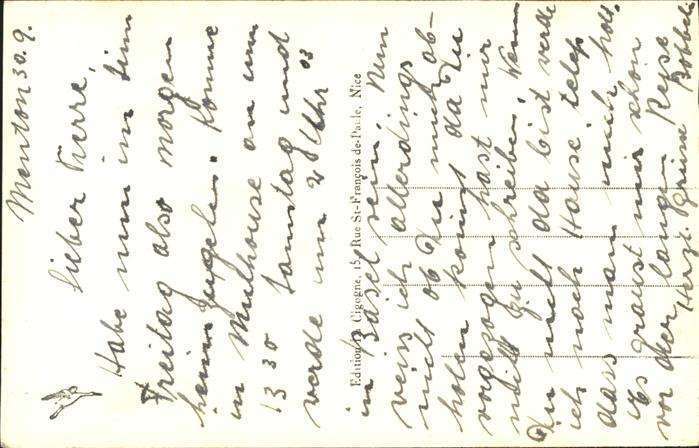 Menton 30. 9.
Lieber Pierre,
Habe nun im Sinn
Freitag also morgen
heim zugehen. Komme
in Mulhouse an um
13 30 Samstag und
werde um 20 Uhr 03
Edition La Cigogne, 15, Rue St-François de-Paule, Nice
in Basel sein. Nun
weiss ich allerdings
nicht ob Du mich ab-
holen kommst da Du
vorgezogen hast mir
nicht zu schreiben. Wenn
Du nicht da bist werde
ich nach Hause telef
dass man mich holt.
Es graust mir schon
vor der langen Reise
Herzl. Grüsse